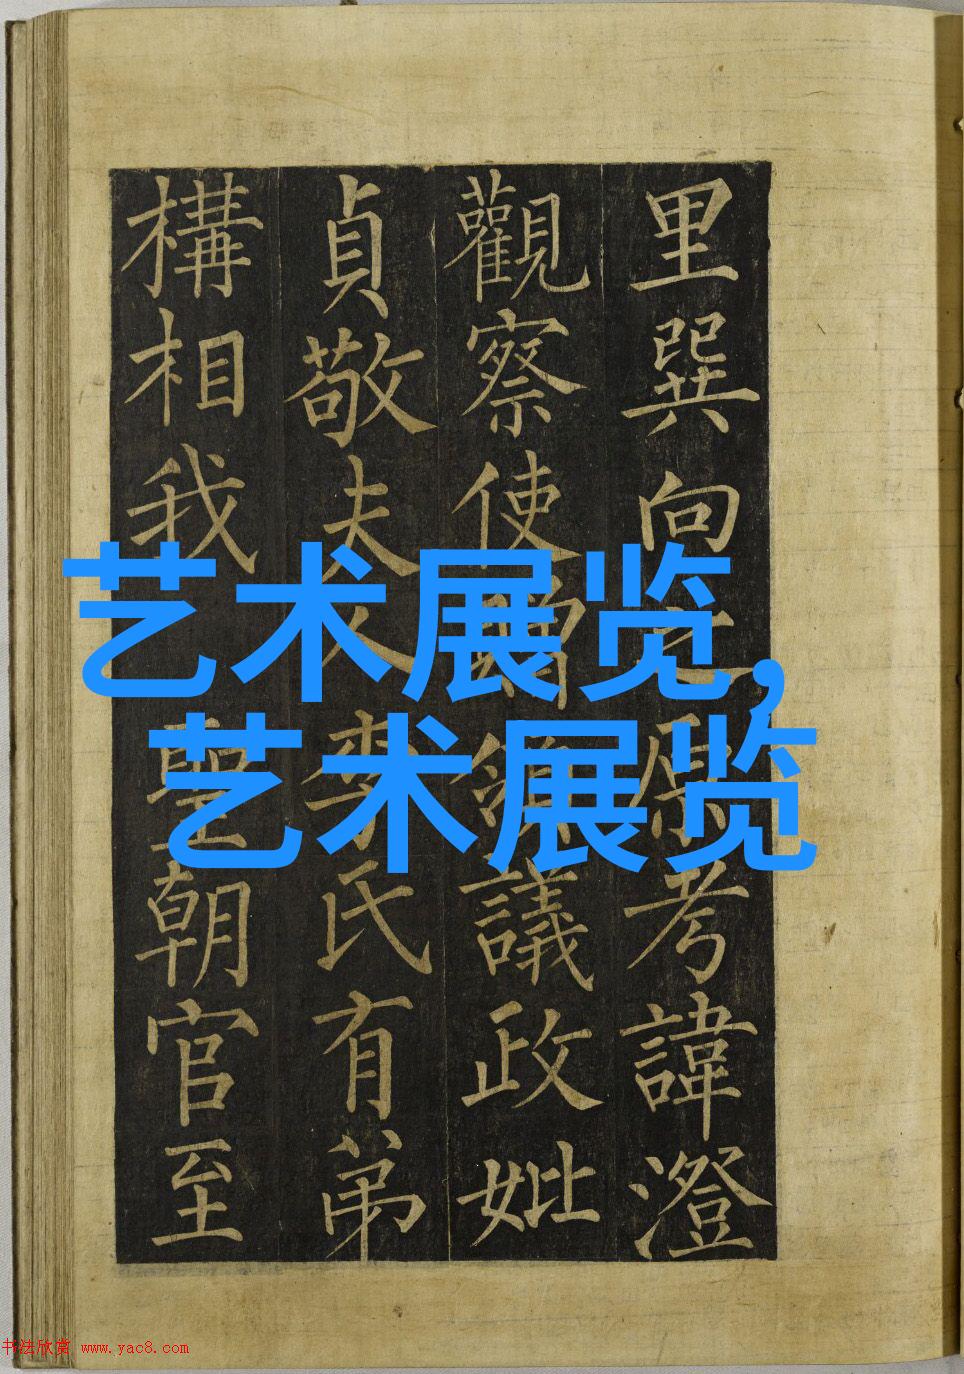 里巽向之原考諱澄
觀察使贈領議政妣
貞敬夫人李氏有弟
構相我聖朝官至
艺术展览,
艺术展览
书法欣赏 www.yac8.com